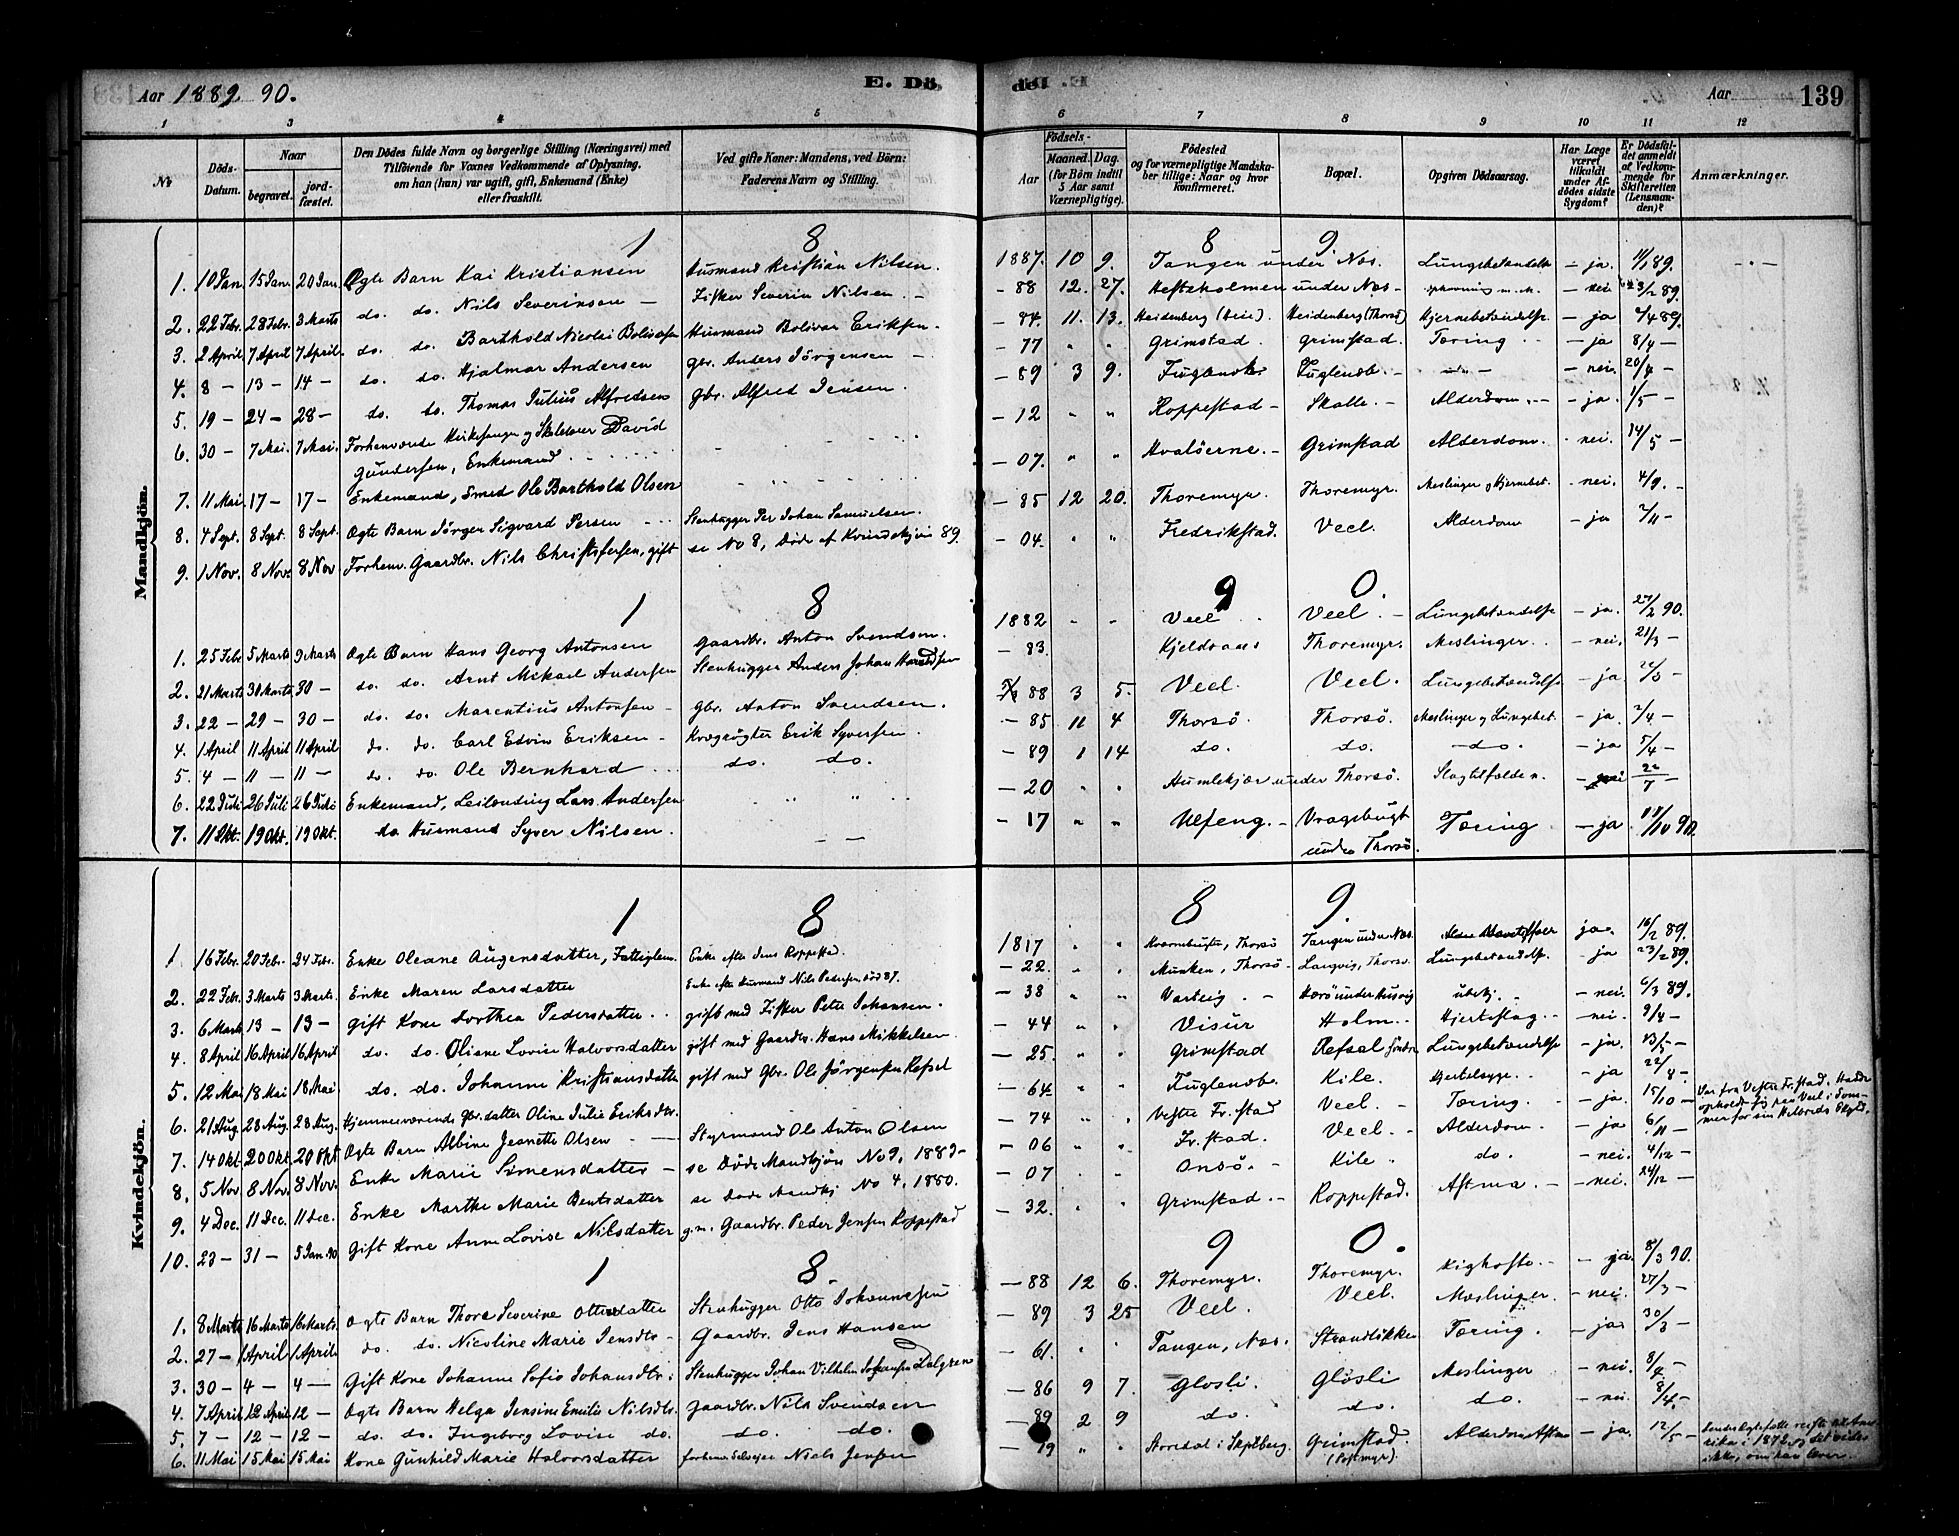 Aar 1889 90.
E. Dö-
de.
Aar
139
1 3 4 5
6 7 8 9 10 11 12
No
Döds-Datum.
Naar
begravet.
jord-fæstet.
Den Dödes fulde Navn og borgerlige Stilling (Næringsvei) med
Tilföiende for Voxnes Vedkommende af Oplysning,
om han (hun) var ugift, gift, Enkemand (Enke)
eller fraskilt.
Ved gifte Koner: Mandens, ved Börn:
Faderens Navn og Stilling.
Födsels-
Aar
Maaned. Dag.
(for Börn indtil
5 Aar samt
Værnepligtige).
Födested
og for værnepligtige Mandska-
ber tillige: Naar og hvor
konfirmeret.
Bopæl.
Opgiven Dödsaarsag.
Har Læge
været
tilkaldt
under Af-
dödes sidste
Sygdom?
Er Dödsfal-
det anmeldt
af Vedkom-
mende for
Skifteretten
(Lensman-
den)?
Anmærkninger.
Mandkjön.
1 8 8 9.
1. 10 Jan. 15 Jan. 20 Jan. Ægte Barn Kai Kristiansen Husmand Kristian Nilsen. 1887. 10 9. Tangen under Nes. Lungebetændelse - ja. 11/1 89.
2. 22 Febr. 28 Febr. 3 Marts do. do. Nils Severinsen - Fisker Severin Nilsen. - 88 12. 27. Hestholmen under Nes - - nei 23/2 89.
3. 2 April 7 April 7 April. do. do. Barthold Nicolai Bolivarsen Husmand Bolivar Eriksen. - 84. 11. 13. Heidenberg (Heie). Heidenberg (Thorsö) Hjernebetændelse - ja 4/4 89.
4. 8 - 13 - 14 - do. do. Hjalmar Andersen Gbr. Anders Jörgensen - - 77 " " Grimstad. Grimstad. Tæring - ja 8/4 -
5. 19 - 24 - 28 - do. do. Thomas Julius Alfredsen Gbr. Alfred Jensen. - 89 3 9. Fuglevik Fuglevik. - - nei. 20/4 -
6. 30 - 7 Mai. 7 Mai. Forhenværende Kirkesanger og Skolelærer David - 12 " " Roppestad - Skalle. - Alderdom. - - ja. 1/5 -
Gundersen, Enkemand
7. 11 Mai 17 - 17 - Enkemand, Smed Ole Barthold Olsen - 07. " " Hvalöerne. - Grimstad Alderdom. - nei. 14/5 -
8. 4 Sept. 8 Sept. 8 Sept. Ægte Barn Jörgen Sigvard Persen Stenhugger Per Johan Samuelsen. - 85 12 20. Thoremyr. Thoremyr. Meslinger og Hjernebet. - nei. 4/9. -
9. 1 Nov. 8 Nov. 8 Nov Forhenv. Gaardbr. Nils Christofersen, gift se No 8, Döde af Kvindekjön 89. - 04. " " Fredrikstad. Veel. Alderdom - ja 7/11 -
1 8 9 0.
1. 25 Febr 5 Marts 9 Marts Ægte Barn Hans Georg Antonsen Gaardbr. Anton Svendsen. 1882 - - Veel Veel. - Lungebetændelse - ja. 27/2 90.
2. 21 Marts 30 Marts 30 - do. do. Arnt Mikael Andersen Stenhugger Anders Johan - 83. Kjeldvans Thoremyr. Meslinger. - nei. 21/3 -
3. 22 - 29 - 30 - do. do. Marentius Antonsen - Gbr. Anton Svendsen. 88 3 5. Veel. Veel. Lungebetændelse - ja -
4. 1 April 11 April 11 April do. do. Carl Edvin Eriksen - Kvægrögter Erik Syversen. - 85 11 4 Thorsö. Thorsö. Meslinger og Lungebet. - ja. 2/4 -
5. 4 - 11 - 11 - do. do. Ole Bernhard do. do. - 89 1 14 do. do. - do. - ja 5/4 -
6. 22 Juli 26 Juli 26 Juli Enkemand, Leilending Lars Andersen - 20 " " Humlekjær under Thorsö. Slagtilfælde. - nei 22/7 -
7. 11 Okt. 19 Okt. 19 Okt. do. Husmand Syver Nilsen. - 17 " " Ulfeng. - Vragebugt Tæring - ja 90.
under Thorsö.
Kvindekjön.
1 8 8 9.
1 16 Febr. 20 Febr. 24 Febr. Enke Oleane Augensdatter, Fattiglem. Enke efter Jens Roppestad. 1817 " " Thorsö Tangen under Nes. ja. 16/2 89.
2. 22 Febr. 3 Marts 3 Marts. Enke Maren Larsdatter Enke efter Husmand Nils Pedersen död 87. - 22. " " Munken, Thorsö - Langvig, Thorsö. Lungebetændelse. - ja 23/2 89.
3. 6 Marts 13 - 13 - Gift Kone Dorthea Pedersdatter gift med Fisker Peter Johansen. - 38 " " Varteig - ubekj. - nei. 6/3 89.
4. 8 April 16 April 16 April do. do. Oliane Lovise Halvorsdatter gift med Gaardbr. Hans Mikkelsen. - 44 " " Visur Holm. - Hjerteslag. - nei. 9/4 -
5. 12 Mai 18 Mai 18 Mai do. do. Johanne Kristiansdatter gift med Gbr. Ole Jörgensen Refsal - 25. " " Grimstad Refsal Söndre Lungebetændelse - ja. 13/5 -
6. 21 Aug. 28 Aug. 28 Aug. Hjemmeværende Gbr. datter Oline Julie Eriksdtr. - 64. " " Fuglevik. Kile. Hjertesyge. - ja 22/8 -
7. 14 Okt 20 Okt 20 Okt Ægte Barn Albine Jeanette Olsen - - Styrmand Ole Anton Olsen - 74 " " Vestre Fr.stad Veel. - Tæring. - ja. 15/10 - Var fra Vestre Fr.stad. Havde
opholdt sig paa Veel i Som-
mer for sin Helbreds Skyld.
8. 5 Nov 8 Nov. 8 Nov. Enke Marie Simensdatter - se Döde Mandkjön No 9, 1889 - - 06 " " Fr.stad. Veel. - Alderdom. - ja 6/11 -
9. 4 Dec. 11 Dec. 11 Dec. Enke Marthe Marie Bentsdatter se Döde Mandkj No 4, 1850. - 07 " " Onsö. - Kile - do. - nei. 4/12 -
10. 23 - 31 - 5 Jan. 90 Gift Kone Anne Lovise Nilsdatter g.m. Gaardbr. Peder Jensen Roppestad - 32. " " Grimstad. - Roppestad. Astma. - - nei. 24/12 -
1 8 9 0.
1. 8 Marts 16 Marts 16 Marts. Ægte Barn Thora Severine Ottersdatter Stenhugger Otto Johannesen - 88 12 6. Thoremyr. Thoremyr. Kighoste. - - ja. 8/3 90.
2. 27 - 1 April 1 April. do. do. Nicoline Marie Jensdtr - Gaardbr. Jens Hansen - 89 3 25 Veel. Veel. Meslinger. - nei. 27/3 -
3. 30 - 4 - 4 - Gift Kone Johanne Sofie Johansdtr. Stenhugger Johan Vilhelm Johansen Dalgren - 61. " " Tangen, Nes. Strandlökken Tæring. - ja 30/3 -
4. 7 April 12 April 12 - Ægte Barn Helga Jensine Emilie Nilsdtr. Gaardbr. Nils Svendsen - 86 9 7. Glosli. Glosli Meslinger - nei. 8/4 -
5. 7 - 12 - 12 - do. do. Ingeborg Lovise do. do. do. - 89 2 9 do. do. do. - nei. 8/4 -
6. 11 Mai 15 Mai 15 Mai Kone Gunhild Marie Halvorsdatter Niels Jensen - 19 " " Storedal i Skjeberg. Grimstad. Alderdom, Astma - ja. 12/5 - reiste til Ame-
(Postmyr). rika i 1872, og det vides
ikke, om han lever.